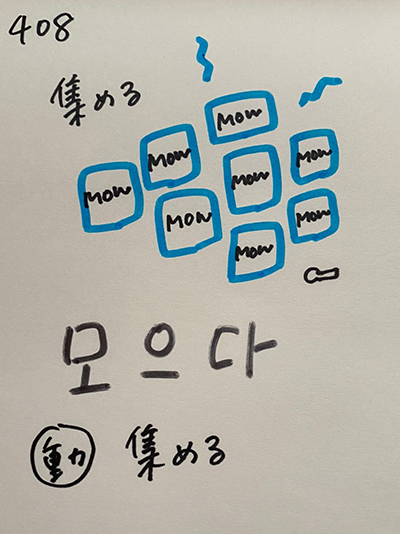 408
集める
MOW
MOW MOW
MOW MOW
MOW MOW
MOW
모으다
動 集める